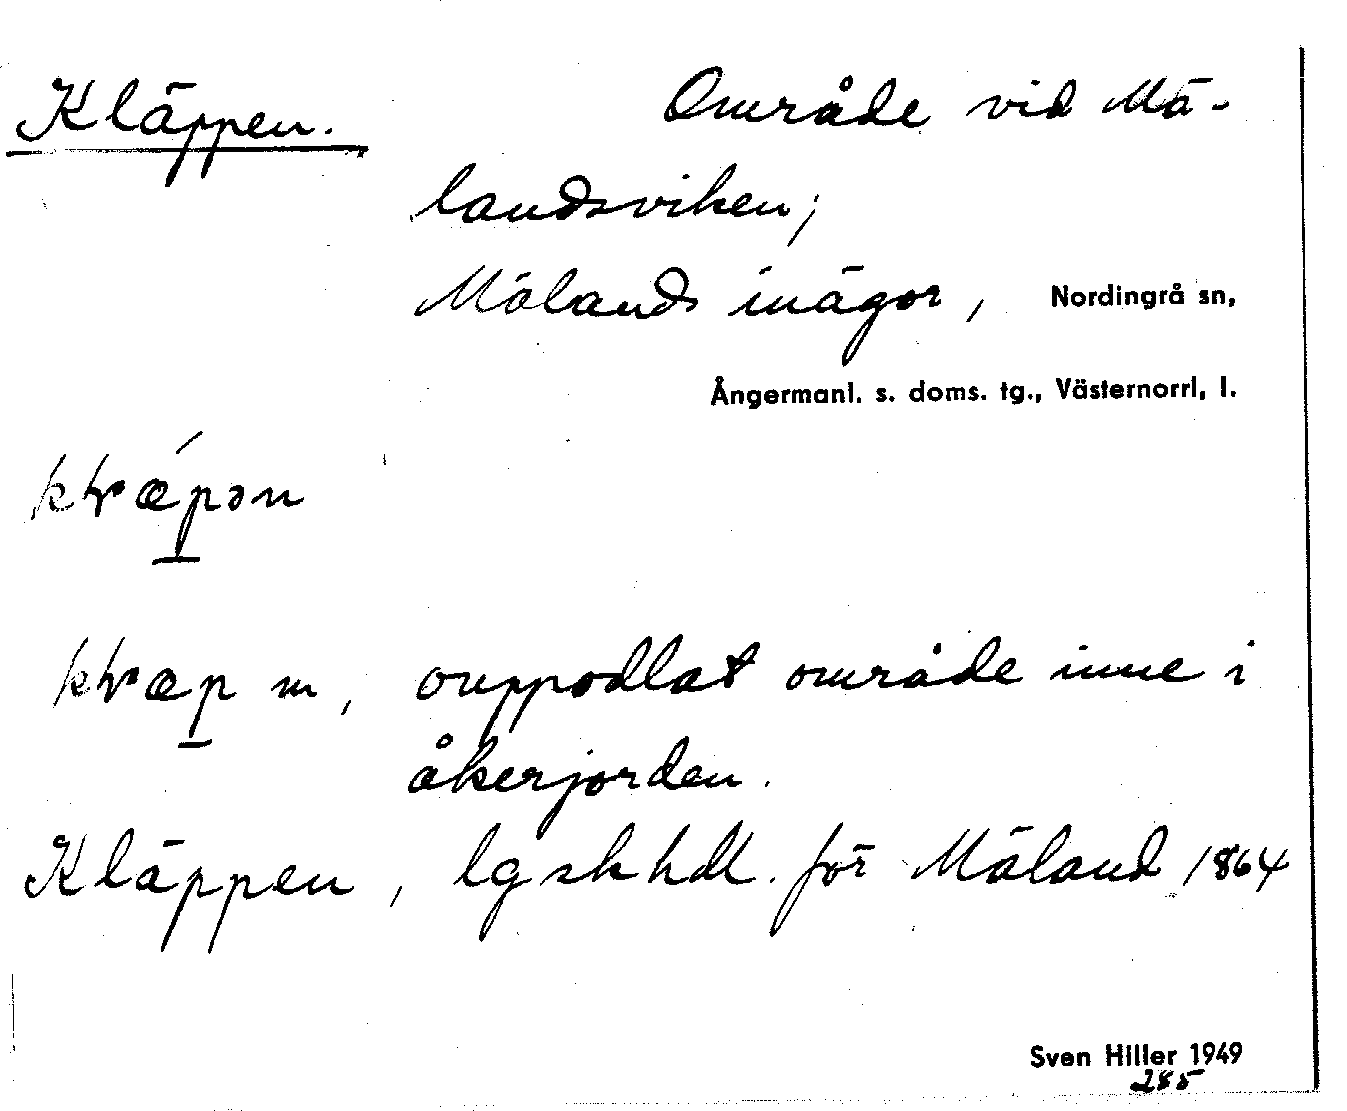 Kläppen. Område vid Mä-
landsviken;
Mälands inägor, Nordingrå sn,
Ångermanl. s. doms. tg., Västernorrl. l.
m, ouppodlat område inne i
åkerjorden.
Kläppen, lgskhdl. för Mäland 1864
Sven Hiller 1949
285